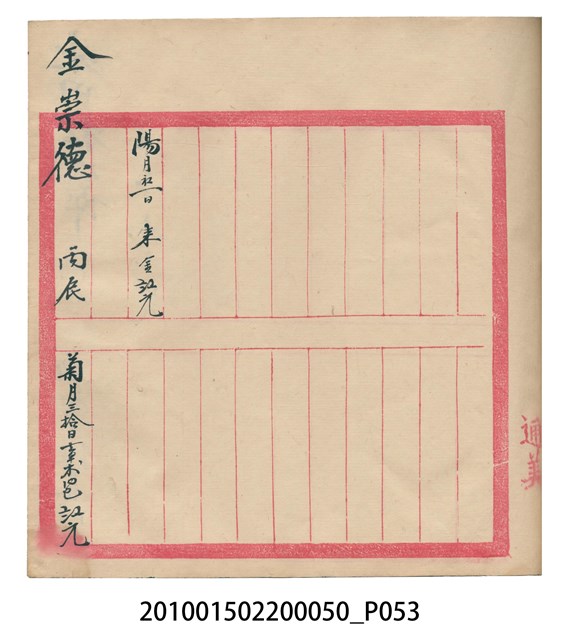 金崇德
丙辰
陽月初一日 來金
菊月三拾日
通美
201001502200050_P053